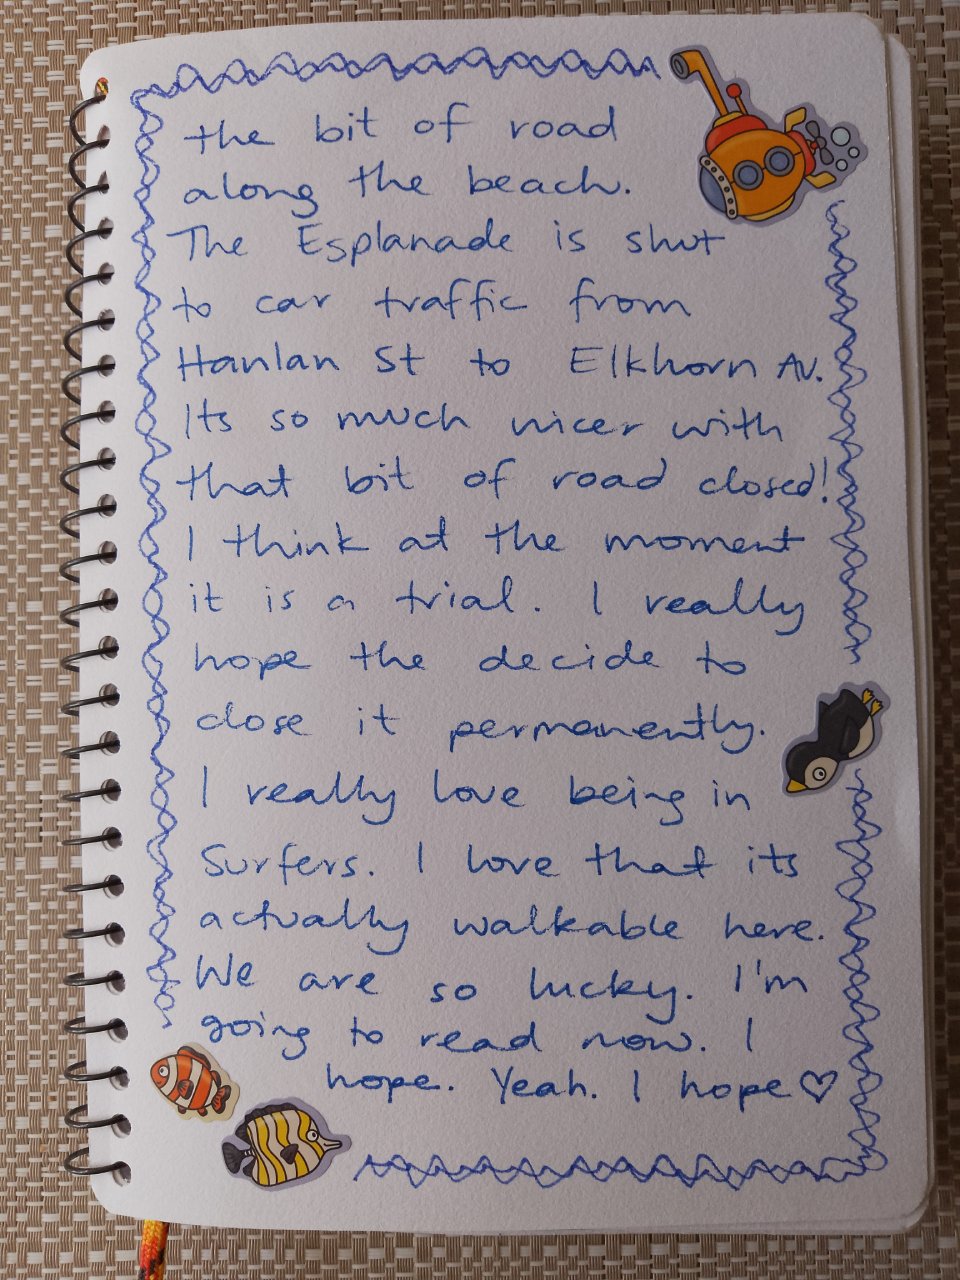 the bit of road
along the beach.
The Esplanade is shut
to car traffic from
Hanlan St to Elkhorn Av.
Its so much nicer with
that bit of road closed!
I think at the moment
it is a trial. I really
hope the decide to
close it permanently.
I really love being in
Surfers. I love that its
actually walkable here.
We are so lucky. I'm
going to read now. I
hope. Yeah. I hope♡